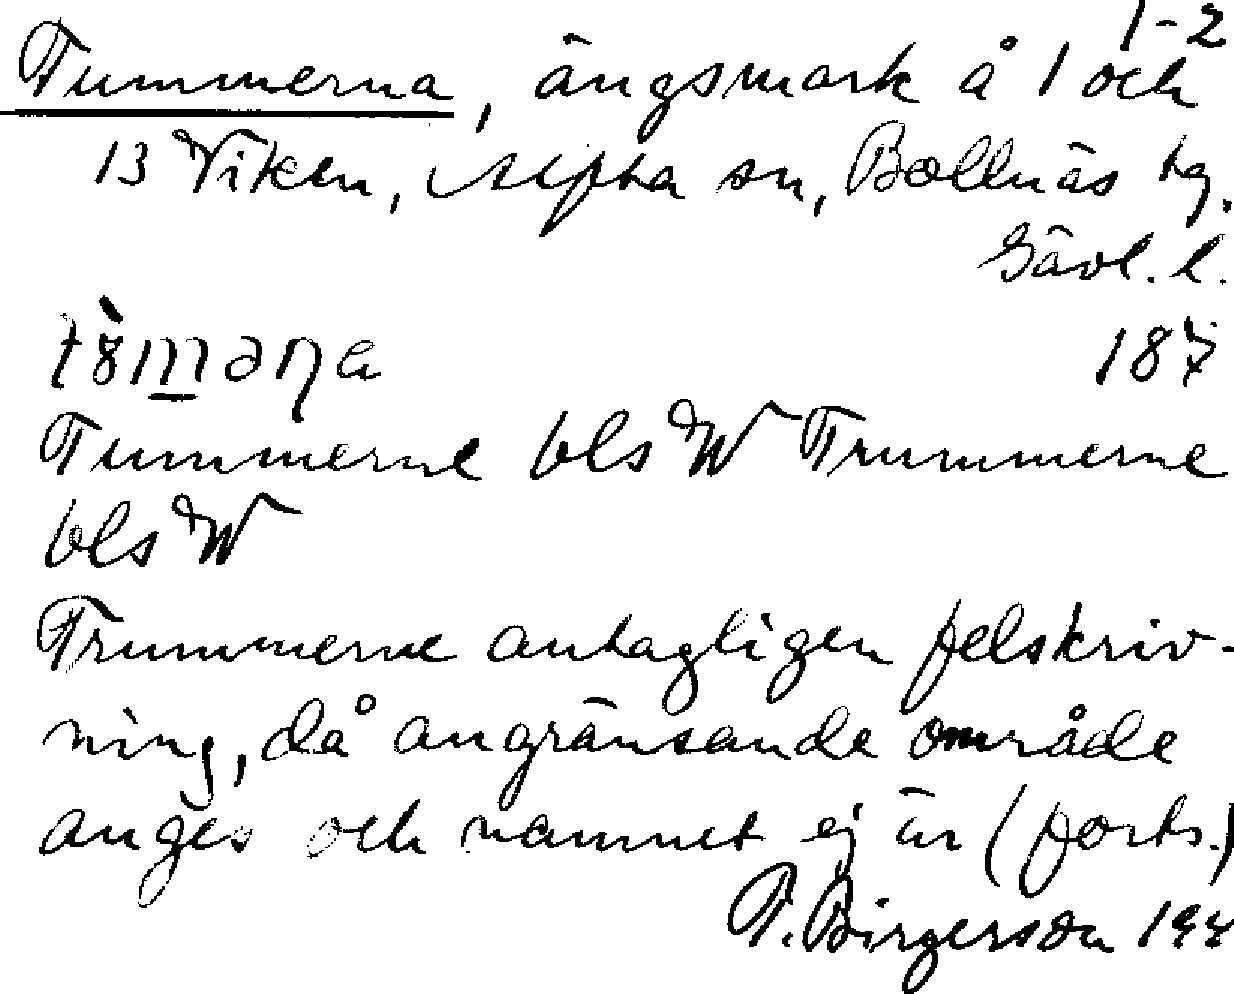 1-2
Tummerna, ängsmark å 1 och
13 Viken, Alfta sn, Bollnäs tg.
Gävl. l.
187
Tummerne bls W Trummerne
bls W
Trummerne antagligen felskriv-
ning, då angränsande område
anges och namnet ej är (forts.)
Birgerson